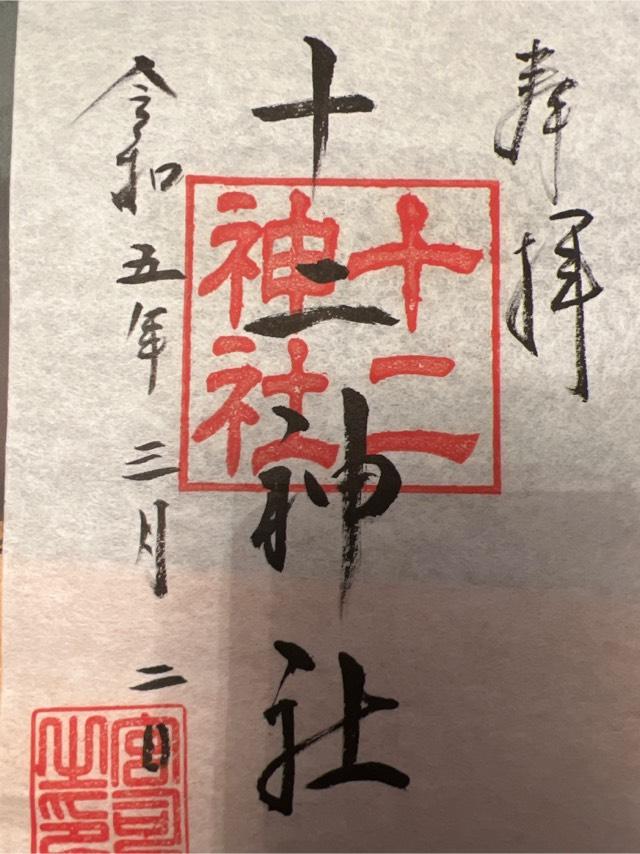 奉拝
十二神社
十二
神社
令和五年三月二日
宮司
之印